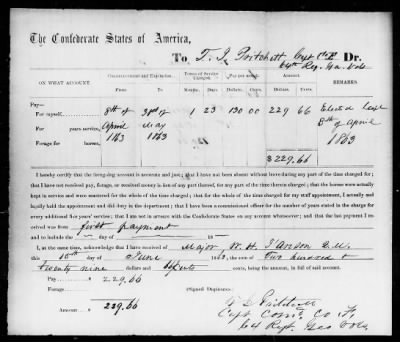 The Confederate States of America,
To T. J. Pritchett Capt Co F Dr.
64th Reg. Ga. Vols
ON WHAT ACCOUNT. Commencement and Expiration. Terms of Service Charged. Pay per month. Amount REMARKS.
From To Months. Days Dollars. Cents. Dollars. Cents.
Pay—
For myself, 8th of 31st of 1 23 130 00 229 66 Elected Capt
For years service, April May 8th of April
Forage for horses, 1863 1863 1863
$229.66
I hereby certify that the foregoing account is accurate and just; that I have not been absent without leave during any part of the time charged for; that
I have not received pay, forage, or received money in lieu of any part thereof, for any part of the time therein charged; that the horses were actually
kept in service and were mustered for the whole of the time charged; that for the whole of the time charged for my staff appointment, I actually and
legally held the appointment and did duty in the department; that I have been a commissioned officer for the number of years stated in the charge for
every additional five years' service; that I am not in arrears with the Confederate States on any account whatsoever; and that the last payment I
received was from first payment
and to include the day of
I, at the same time, acknowledge that I have received of Major W. H.
this 10th day of June 1863, Two hundred &
twenty nine dollars and cents, being the amount, in full of said account.
Pay 229.66
Forage (Signed Duplicates.)
Amount 229.66
Capt Com'g Co F,
64 Regt Geo Vols